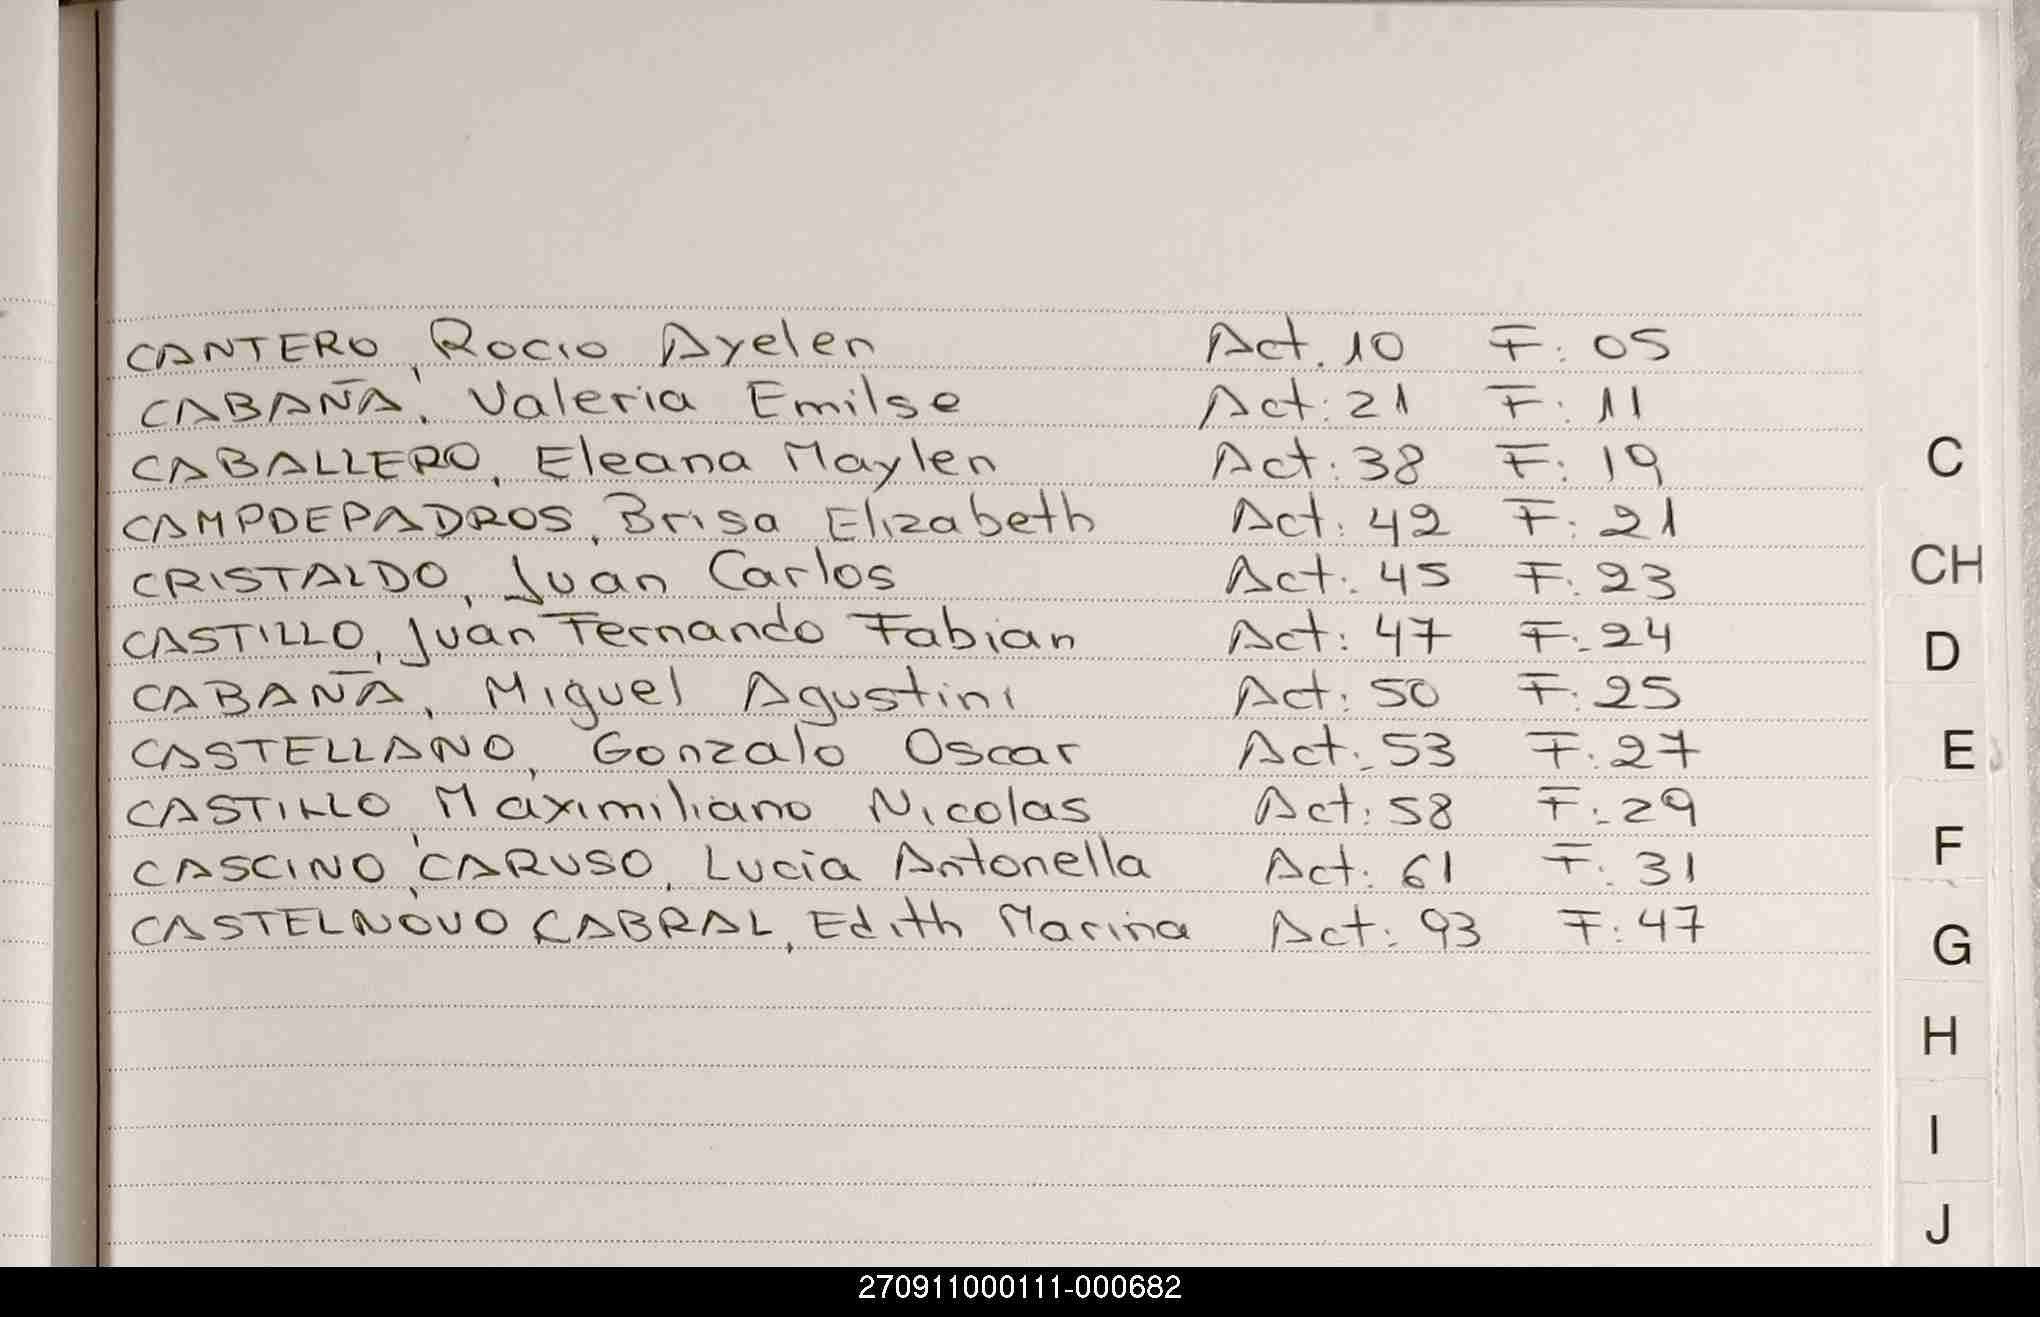 CANTERO, Rocio Ayelen Act. 10 F: 05
CABAÑA, Valeria Emilse Act: 21 F: 11
CABALLERO, Eleana Maylen Act: 38 F: 19
CAMPDEPADROS, Brisa Elizabeth Act: 42 F: 21
CRISTALDO, Juan Carlos Act: 45 F: 23
CASTILLO, Juan Fernando Fabian Act: 47 F: 24
CABAÑA, Miguel Agustini Act: 50 F: 25
CASTELLANO, Gonzalo Oscar Act: 53 F: 27
CASTILLO, Maximiliano Nicolas Act: 58 F: 29
CASCINO CARUSO, Lucia Antonella Act: 61 F: 31
CASTELNOVO CABRAL, Edith Marina Act: 93 F: 47
C
CH
D
E
F
G
H
I
J
270911000111-000682